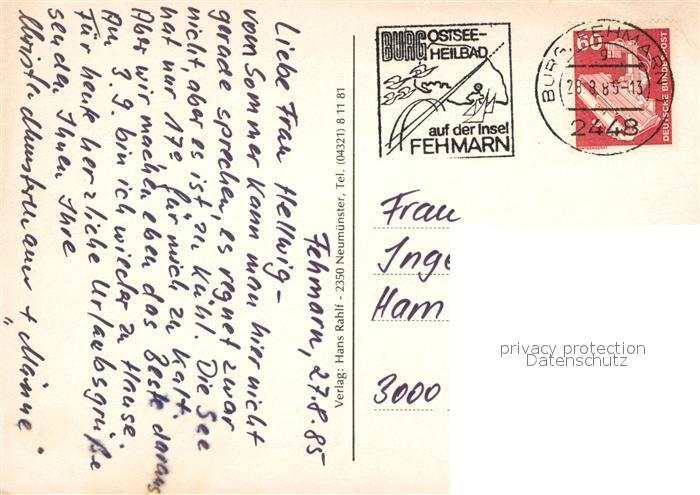 Fehmarn, 27.8.85
Liebe Frau Hellwig –
vom Sommer kann man hier nicht
gerade sprechen, es regnet zwar
nicht, aber es ist zu kühl. Die See
hat nur 17° für mich zu kalt.
Aber wir machen eben das Beste daraus
Am 3.9. bin ich wieder zu Hause.
Für heute herzliche Urlaubsgrüße
senden Ihnen Ihre
Christa + "Männe"
Verlag: Hans Rahlf - 2350 Neumünster, Tel. (04321) 8 11 81
BURG OSTSEE-
HEILBAD
auf der Insel
FEHMARN
BURG, FEHMARN
28.8.85-13
2448
60
DEUTSCHE BUNDESPOST
Frau
Inge
Ham
3000
privacy protection
Datenschutz